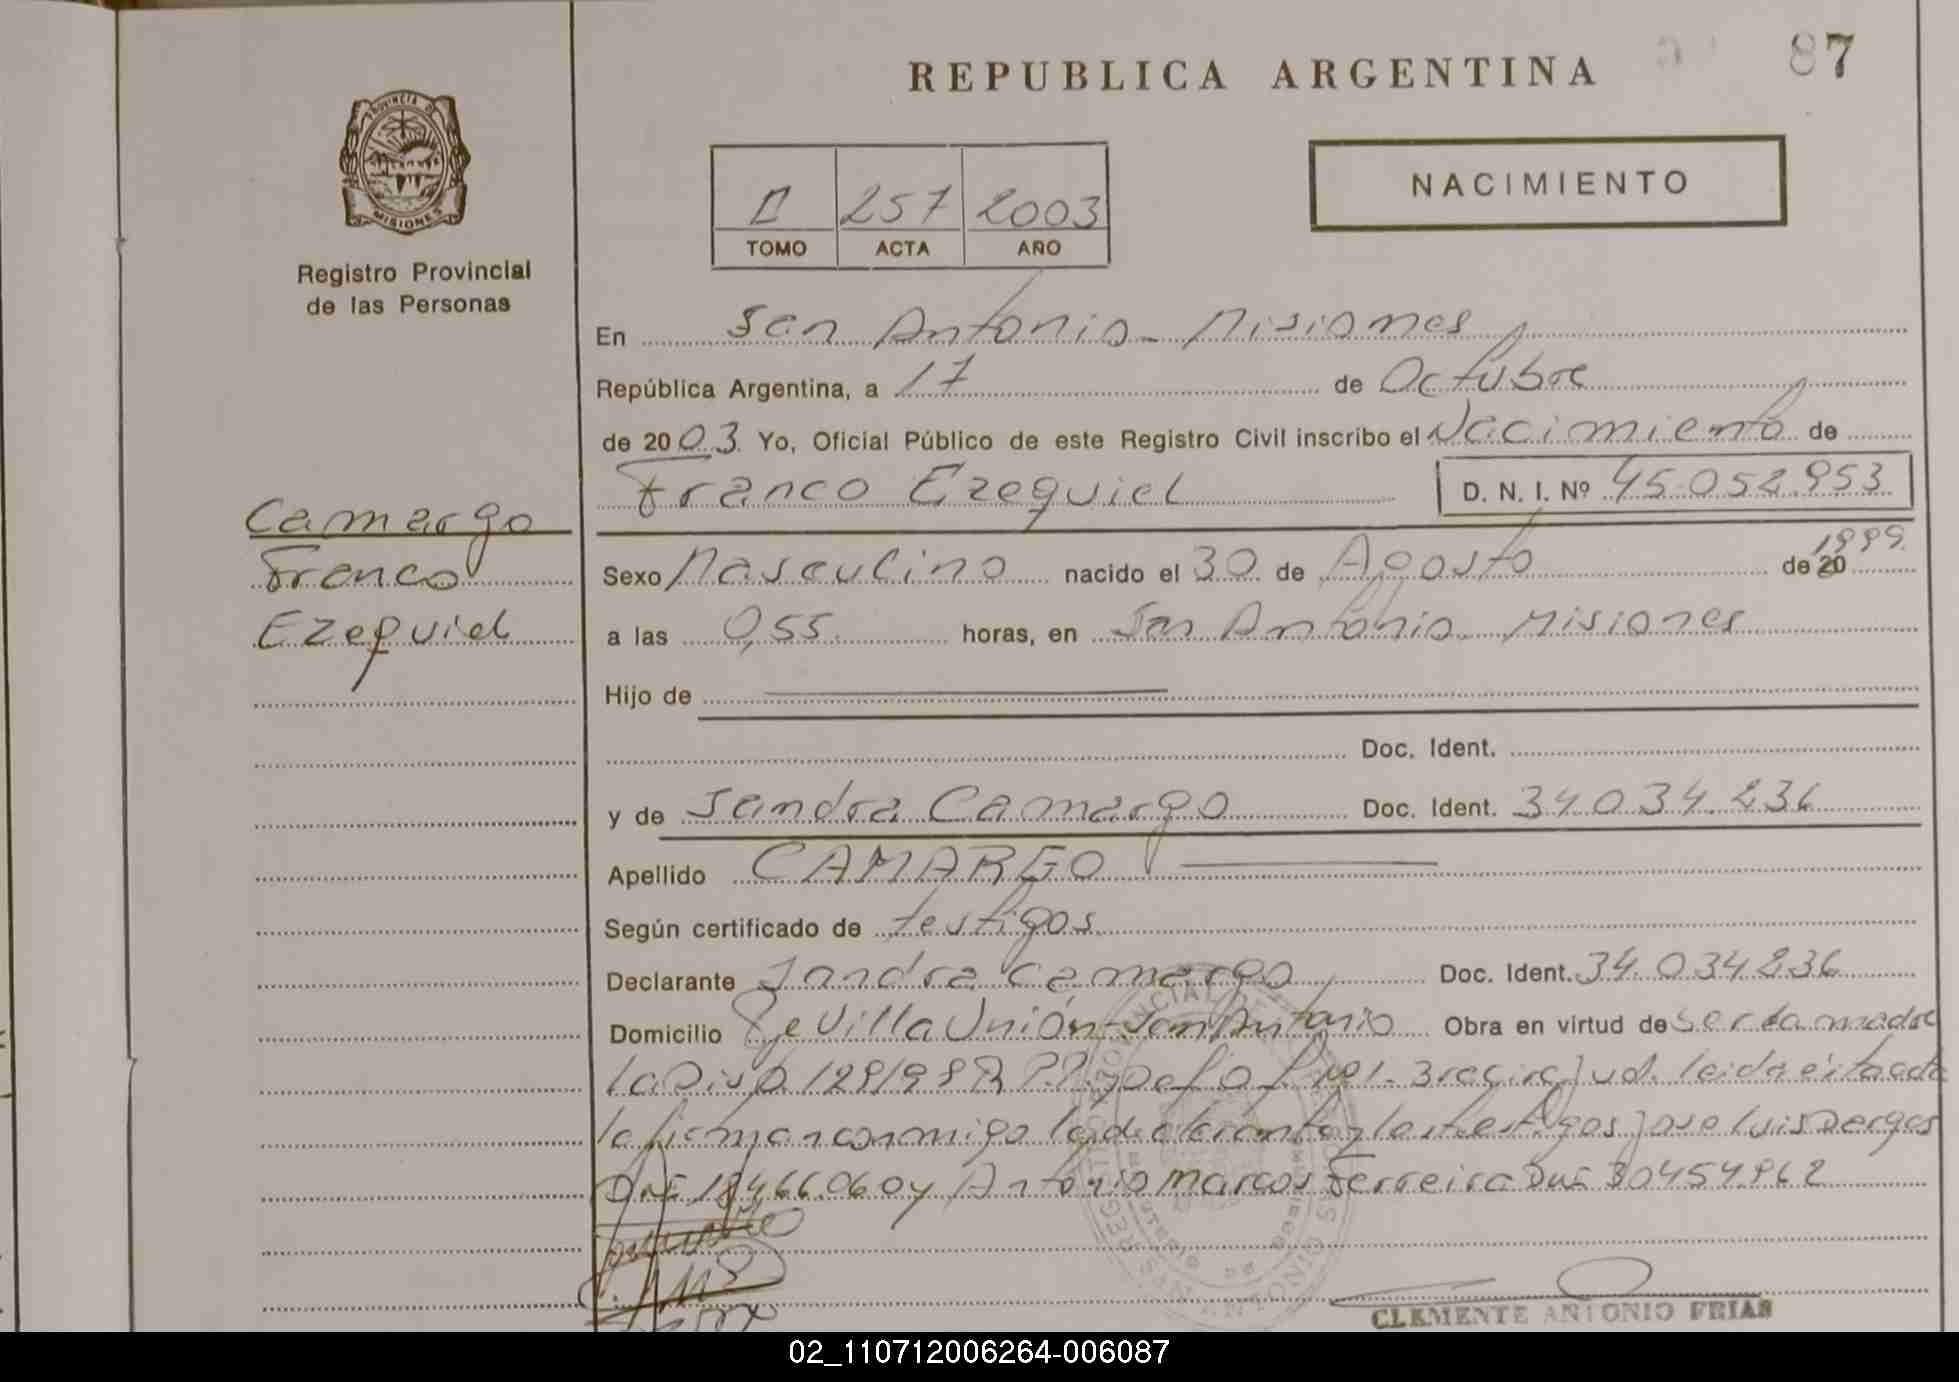 87
REPUBLICA ARGENTINA
PROVINCIA DE
MISIONES
Registro Provincial
de las Personas
II 257 2003
TOMO ACTA AÑO
NACIMIENTO
En San Antonio - Misiones
República Argentina, a 17 de Octubre
de 2003. Yo, Oficial Público de este Registro Civil inscribo el Nacimiento de
Franco Ezequiel D. N. I. Nº 45.052.953
Camargo
Franco
Ezequiel
Sexo Masculino nacido el 30 de Agosto de 20 1999.
a las 0,55 horas, en San Antonio Misiones
Hijo de
Doc. Ident.
y de Sandra Camargo Doc. Ident. 34.034.236
Apellido CAMARGO
Según certificado de testigos
Declarante Sandra Camargo Doc. Ident. 34.034.236
Domicilio Villa Unión - San Antonio Obra en virtud de ser la madre
la Disp. 129/98 jud. leida el acta
la firman conmigo la declarante y los testigos Jose Luis
DNI y Antonio Marcos Ferreira DNI 30454962
CLEMENTE ANTONIO FRIAS
02_110712006264-006087